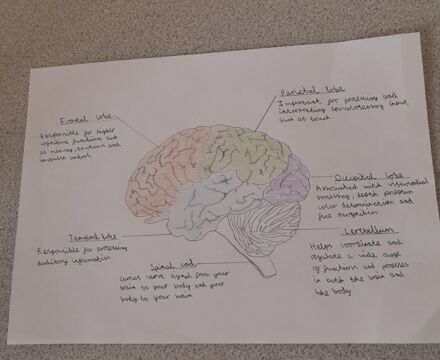 Frontal lobe
Responsible for higher
cognitive functions such
as memory, emotions and
impulse control.
Parietal lobe
Important for processing and
interpreting somatosensory input
such as touch.
Occipital lobe
Associated with visuospatial
processing, depth perception
color determination and
face recognition
Temporal lobe
Responsible for processing
auditory information
Spinal cord
Carries nerve signals from your
brain to your body and your
body to your brain
Cerebellum
Helps coordinate and
regulate a wide range
of functions and processes
in both the brain and
the body